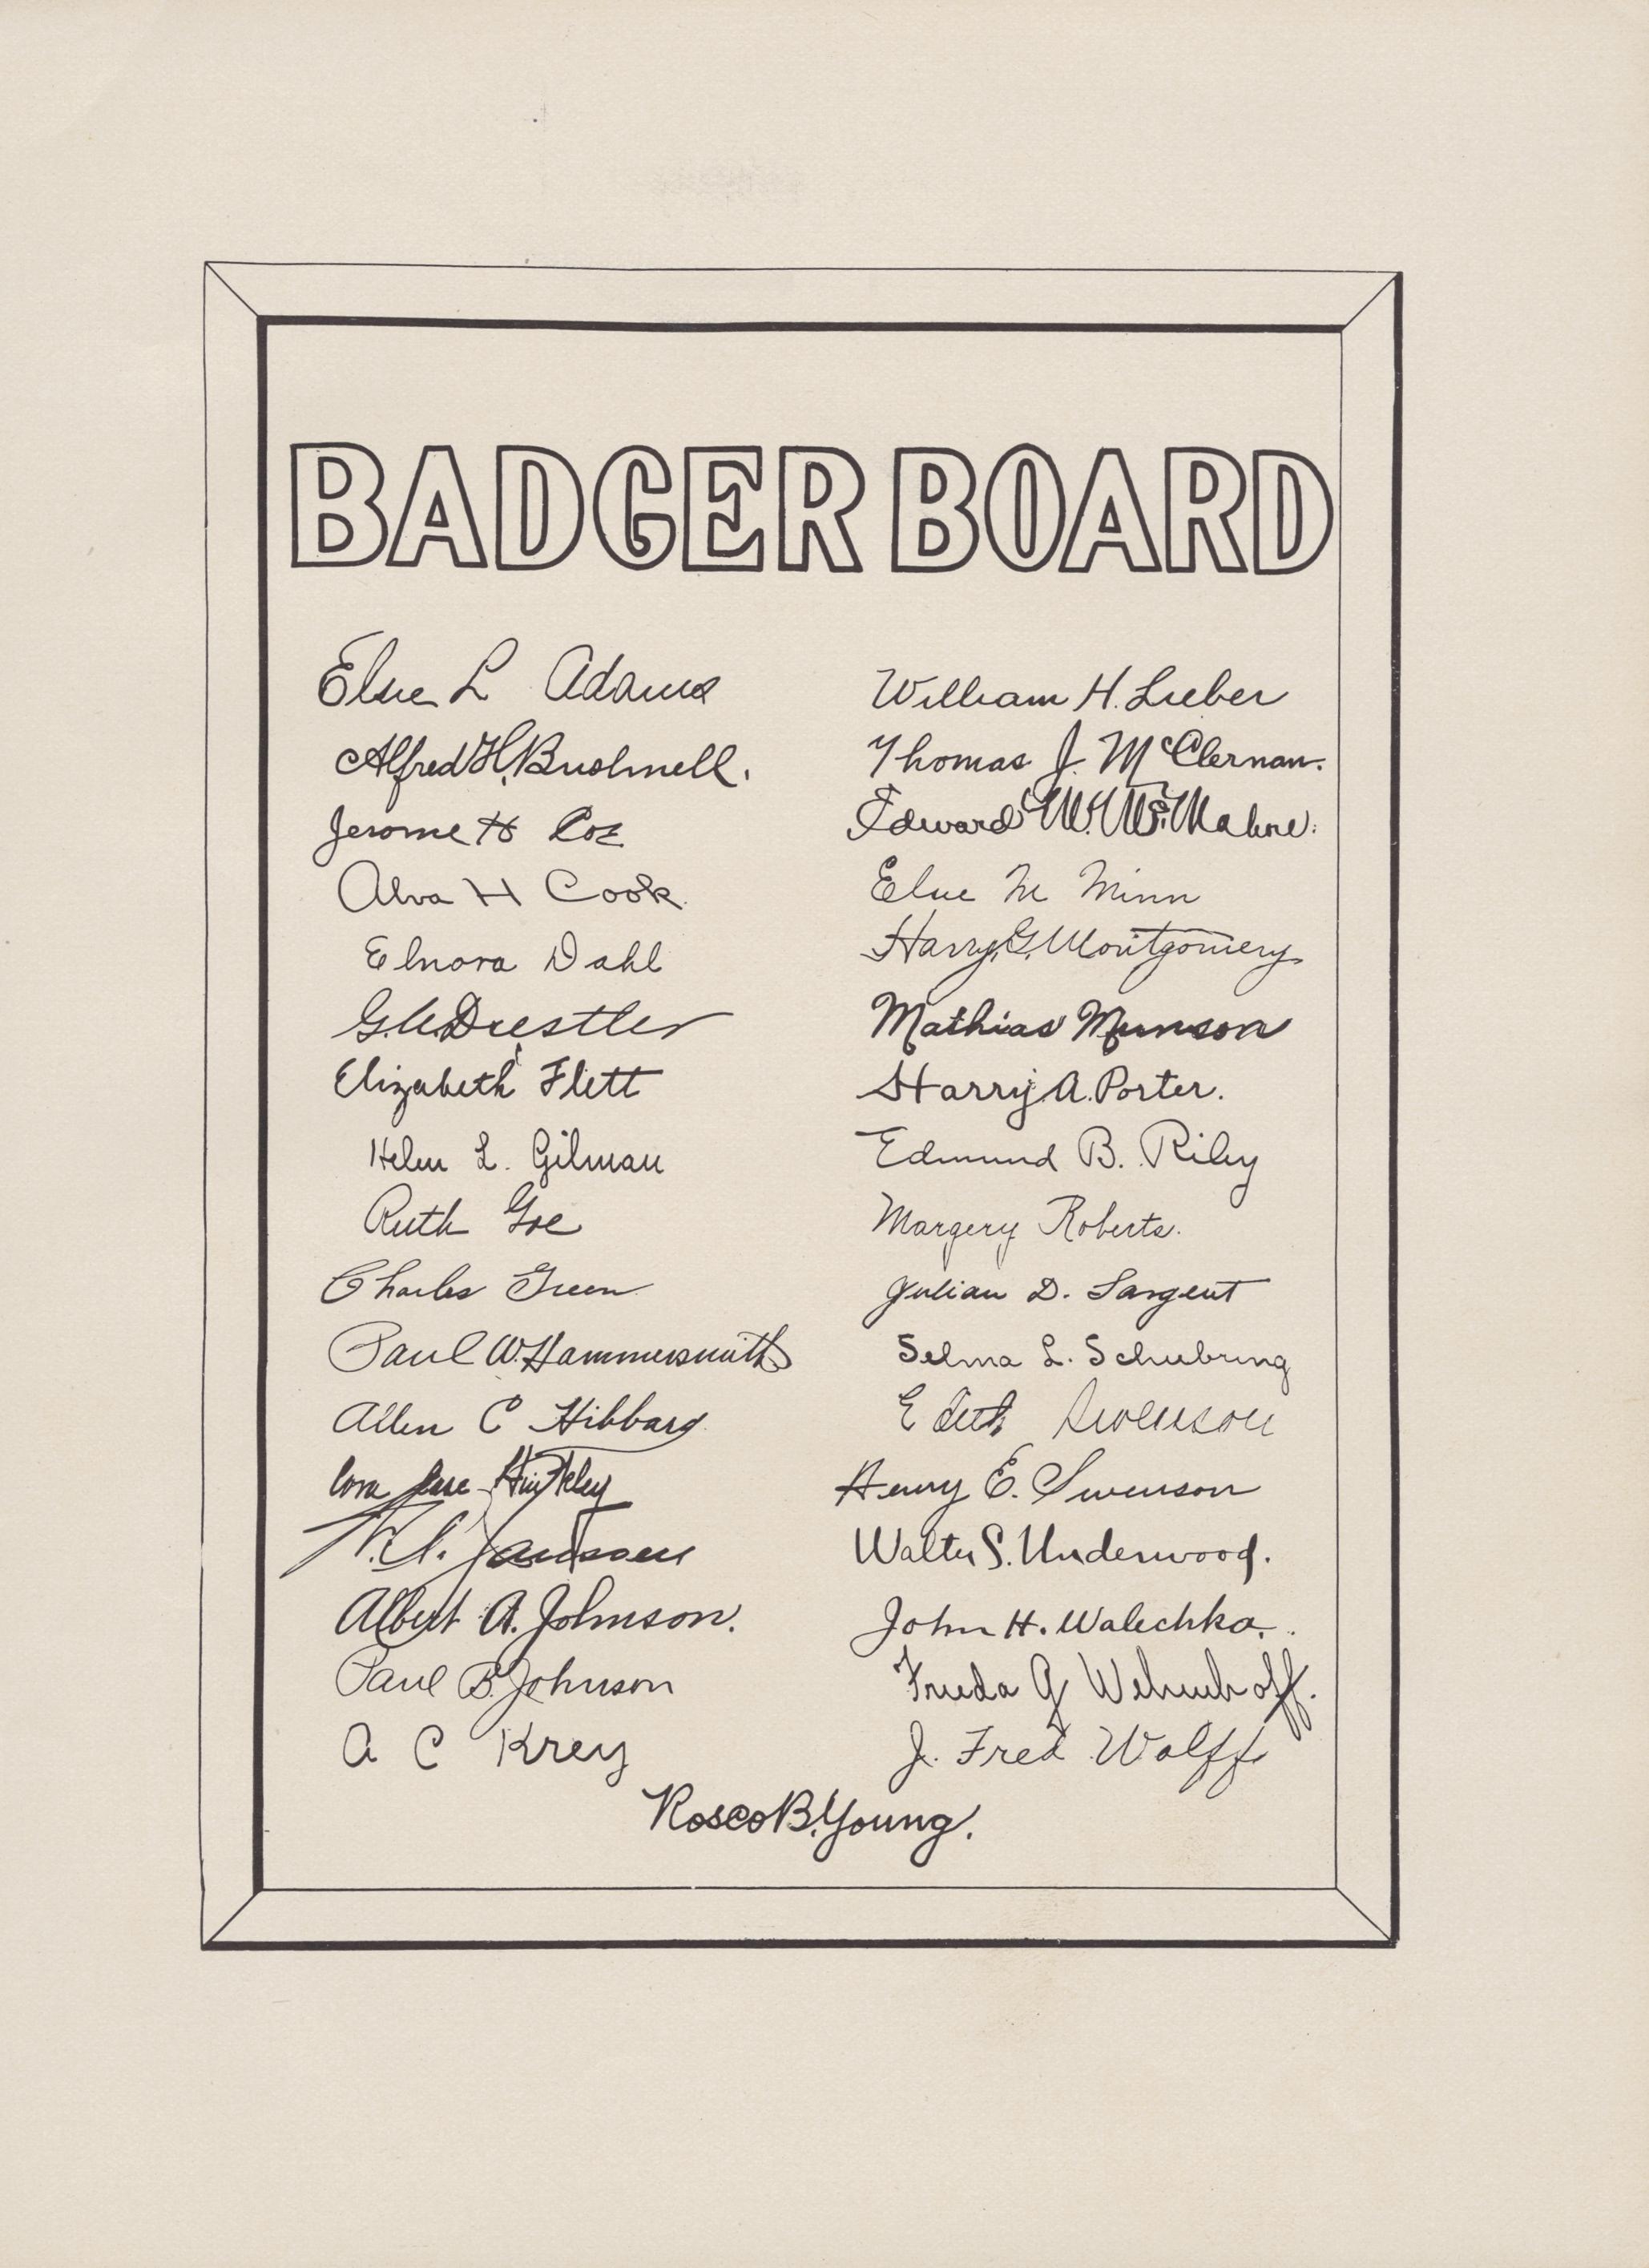 BADGER BOARD
Elsie L Adams
Alfred H. Bushnell.
Jerome H Coe
Alva H Cook.
Elnora Dahl
G. W. Drestler
Elizabeth Flett
Helen L. Gilman
Ruth Goe
Charles Green
Paul W. Hammersmith
Allen C Hibbard
Cora Case-Hinkley
Janssen
Albert A. Johnson.
Paul B. Johnson
A C Krey
William H. Lieber
Thomas J. McClernan.
Edward W. McMahon.
Elsie M Minn
Harry G. Montgomery
Mathias Munson
Harry A. Porter.
Edmund B. Riley
Margery Roberts.
Julian D. Sargent
Selma L. Schubring
Edith Swenson
Henry E. Swenson
Walter S. Underwood.
John H. Walechka.
Frieda G
J. Fred Wolff
Rosco B. Young.